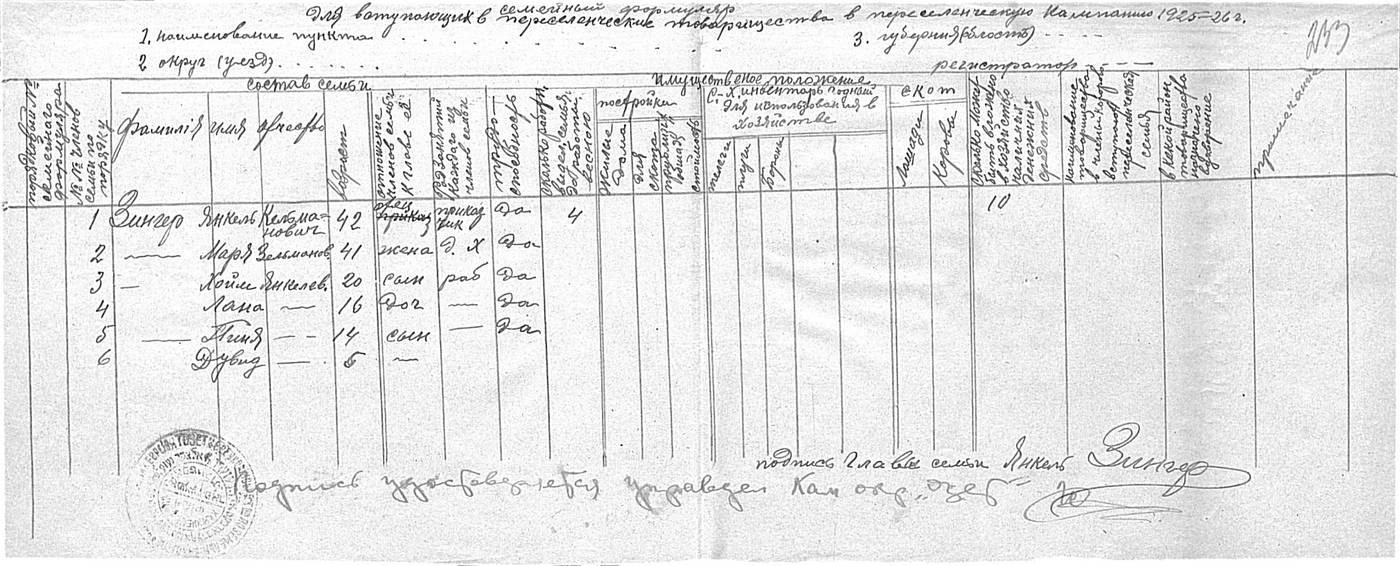 семейный формуляр
для вступающих в переселенческие товарищества в переселенческую кампанию 1925-26 г.
1. наименование пункта
3. губерния (область)
233
2 округ (уезд)
регистратор
состав семьи
имущественое положение
порядковый №
семейного
формуляра
№№ членов
семьи по
порядку
фамилия имя отчество
возраст
отношение
членов семьи
к главе её
род занятий
каждого из
членов семьи
трудо-
способность
постройки
жилые
дома
для
скота
стоимость
С-Х. инвентарь годный
для использования в
хозяйстве
телеги
плуги
бороны
скот
лошади
корова
сколько может
быть вложено
в хозяйство
наличных
денежных
средств
наименование
товарищества
в члены которого
вступает
переселенческая
семья
в каком районе
товарищество
примечание
1 Зингер Янкель Кельма-
нович 42 отец приказ
чик да 4 10
2 — Маря Зельманов 41 жена д. х да
3 — Хойм Янкелев. 20 сын раб да
4 Лана — 16 доч — да
5 — Пиня — 14 сын — да
6 Дувид — 5 —
подпись главы семьи Янкель Зингер
подпись удостоверяется управдел Кам окр „Озет"